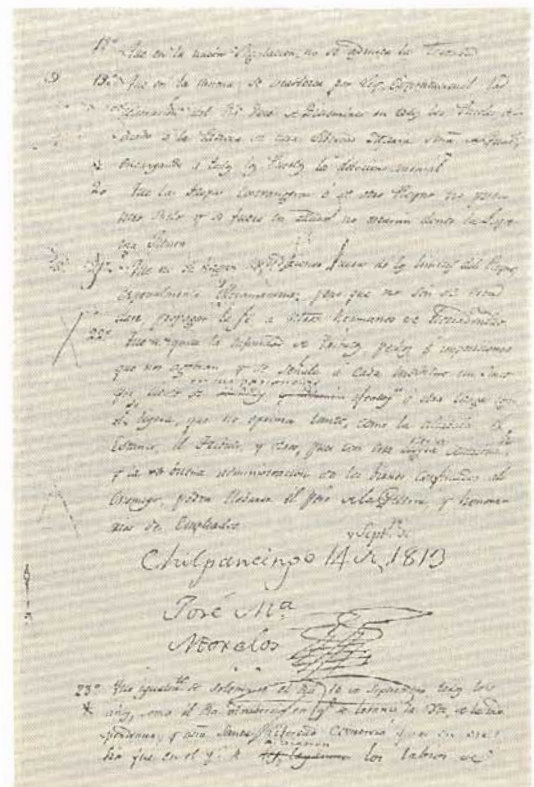 18º Que en la nueva Legislacion, no se admita la Tortura
19º Que en la misma se establesca por Ley Constitucional la
del dia Doce de Diciembre en todos los Pueblos,
a la Patrona de nra. Libertad Maria Sma. de Guadalupe
encargando a todos los Pueblos la devocion mensal
20 Que las Tropas Extrangeras ó de otro Reyno no pisen
nro Suelo y si fuere en no estarán donde la Supre
ma Junta
21º Que no se hagan Expediciones fuera de los limites del Reyno
especialmente Ultramarinas; pero que no son de esta
clase, propagar la fe a nuestros hermanos de
22º Que se quite la infinidad de tributos, pechos é imposiciones
que nos agovian, y se señale a cada individuo un cinco
por ciento en sus ganancias ú otra carga igual
ligera, que no oprima tanto, como la alcabala el
Estanco, el Tributo, y otros, pues con esta ligera contribucion
y la buena administracion de los bienes confiscados al
Enemigo, podra llevarse el peso de la Guerra, y honora
rios de Empleados
Chilpancingo 14 de Septe. de 1813
José Ma.
Morelos
23º Que igualmte. se solemnise el dia 16 de Septiembre todos los
años, como el dia en qe. se levantó la voz de la Inde
pendencia, y nra Santa Libertad comenzó pues en ese
dia fue en el qe. se los labios de